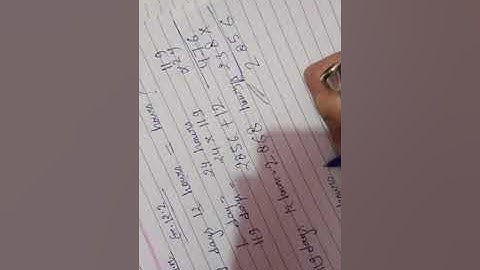 days 12 hours = hours
1 day = 24 hours
119 days = 24 x 119
2856 + 12
119 days, 12 hours = 2868 hours
119
x 24
476
238 x
2856
hours